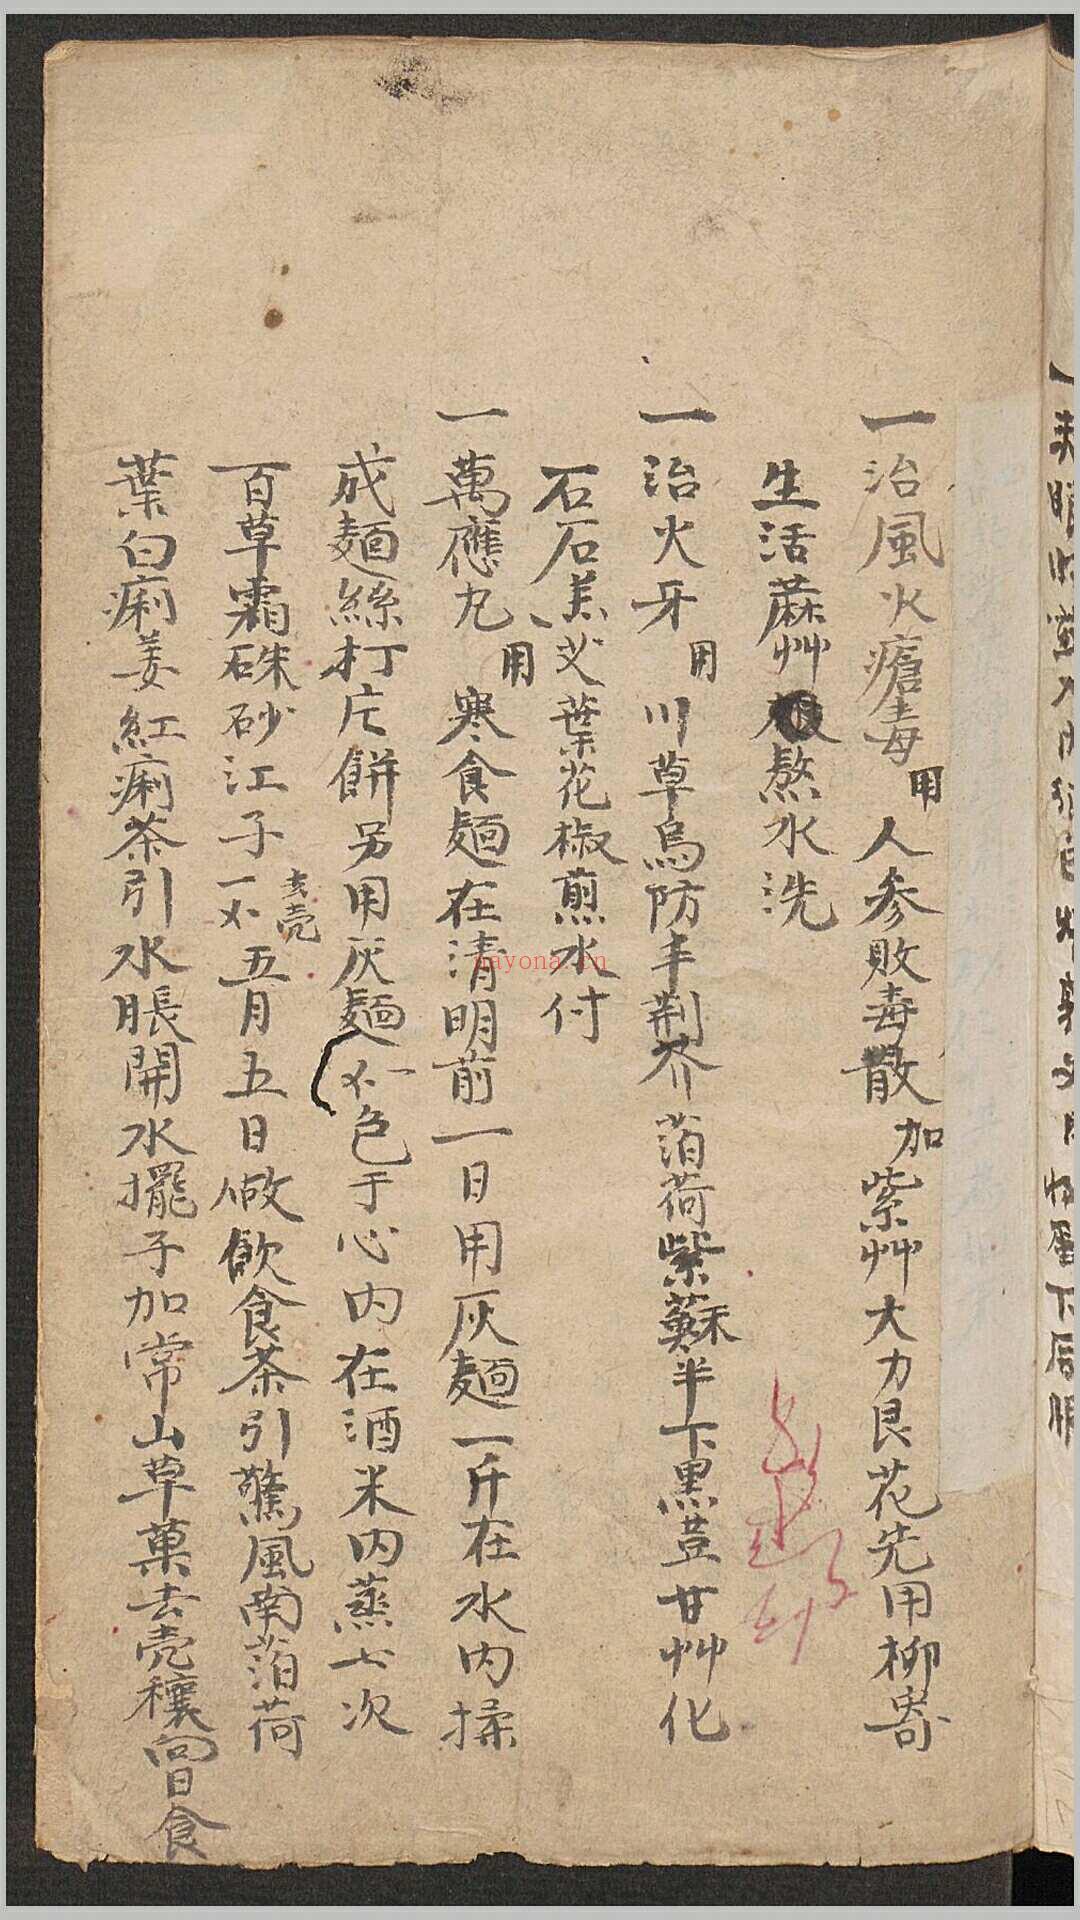 一治風火瘡毒用人參敗毒散加紫艸大力艮花先用柳寄
生活蔴艸根熬水洗
一治火牙用川草烏防丰荆芥萡荷紫蘇半下黑荳甘艸化
石石羔艾葉花椒煎水付
一萬應九用寒食麺在清明前一日用灰麺一斤在水内揉
成麺絲打片餅另用灰麺一不色于心内在酒米内蒸七次
百草霜硃砂江子一不去壳五月五日做飲食茶引驚風南萡荷
葉白痢姜紅痢茶引水脹開水擺子加常山草菓去壳穰向日食
nayona.cn